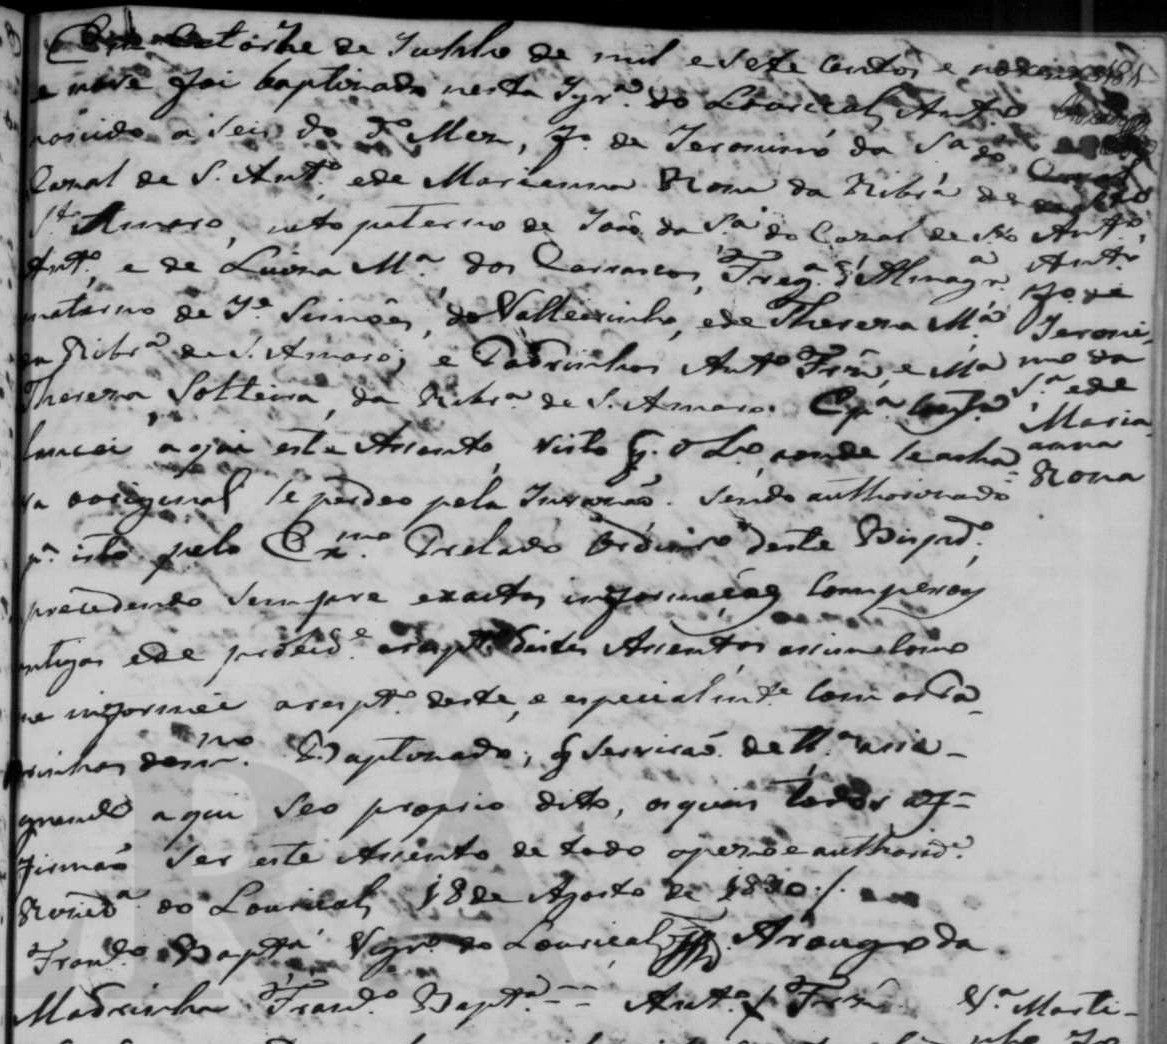 Em Catorze de Julho de mil e Sete centos e noventa
e nove foi baptizado nesta Igrª. do Louriçal, Antº
nascido a Seis do dº Mez, fº. de Jeronimo da Sª do
Cazal de S. Antº. e de Marianna Roza da Ribrª de
Stº Amaro, neto paterno de João da Sª do Cazal de Stº
Antº, e de Luiza Mª. dos Carrascos, Fregª. d'Almagrª
materno de Jº Simões, do Valleirinho, e de Thereza Mª
da Ribrª de S. Amaro; e Padrinhos Antº Frz, e Mª
Thereza, Solteira, da Ribrª de S. Amaro. E pª
lancei aqui este Assento, visto q. o Lº aonde se acha-
va original se perdeo pela Invazão. Sendo authorizado
pª isto pelo Exmo. Prelado Ordinrº deste Bispdº.
precedendo sempre exactas informações Com pessoas
antigas e de probidº. a resptº destes Assentos assim como
me informei a resptº. deste, e especialmte. Com os Pa-
rinhos do mmo. Baptizado, q Servirão de tt.as assi-
gnando aqui seo proprio dito, os quais todos af-
firmão Ser este Assento de todo o pezo e authoridº.
Rezidª do Louriçal, 18 de Agosto de 1820 /.
Francº. Baptª Vigrº do Louriçal A rougo da
Madrinha Francº. Baptª. Antº + Frz
Antº,
Antº
fº de
Jeroni-
mo da
Sª. e de
Maria-
anna
Roza
Vª Marti-
nho